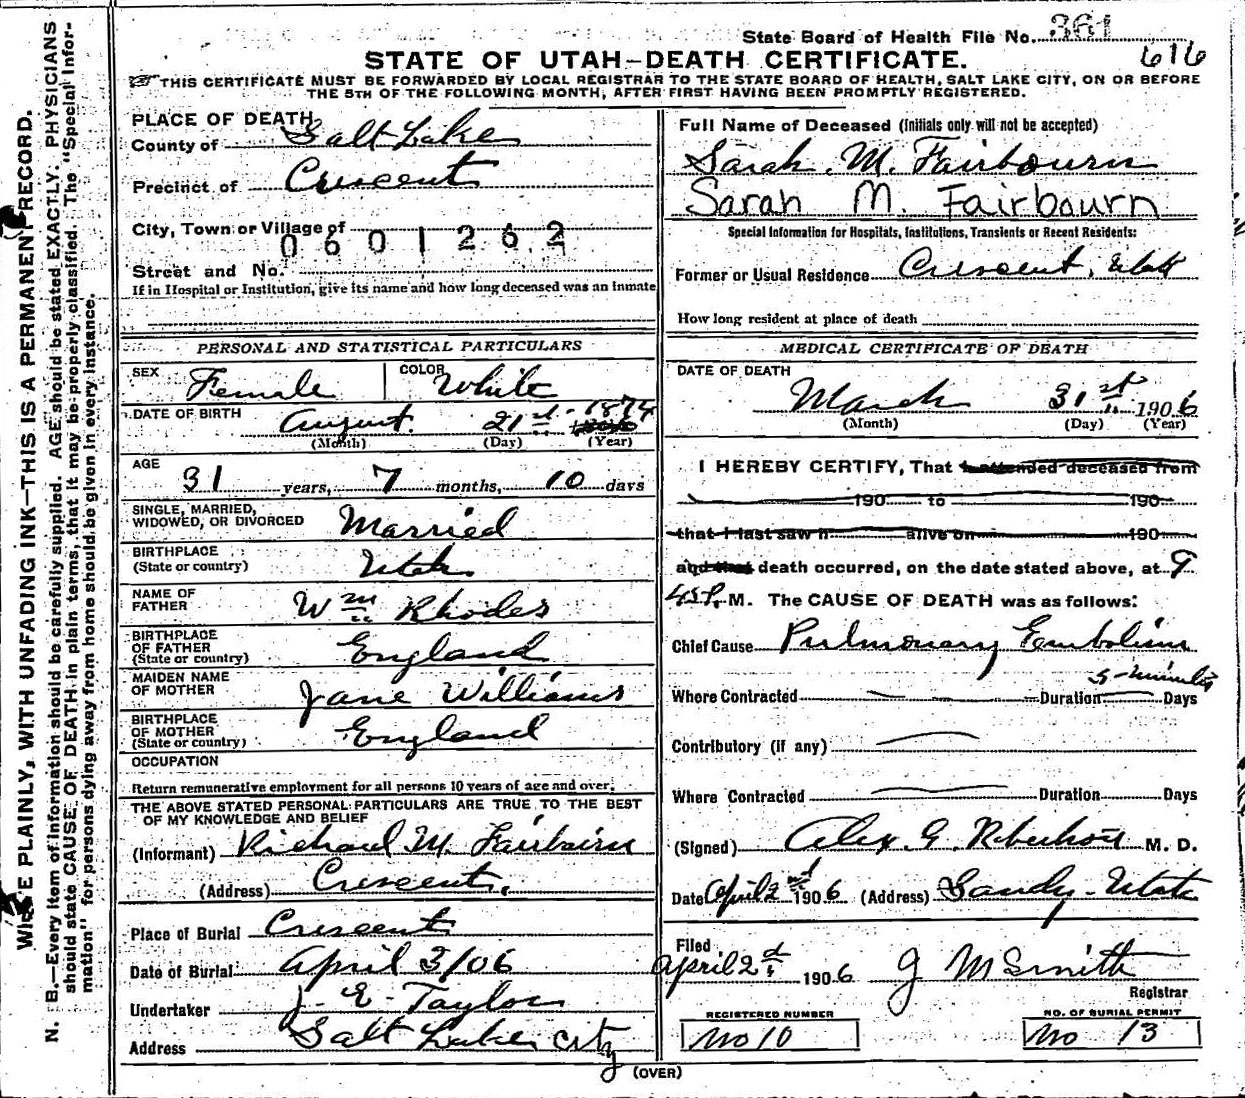 State Board of Health File No. 361
616
STATE OF UTAH—DEATH CERTIFICATE.
THIS CERTIFICATE MUST BE FORWARDED BY LOCAL REGISTRAR TO THE STATE BOARD OF HEALTH, SALT LAKE CITY, ON OR BEFORE
THE 5TH OF THE FOLLOWING MONTH, AFTER FIRST HAVING BEEN PROMPTLY REGISTERED.
WRITE PLAINLY, WITH UNFADING INK—THIS IS A PERMANENT RECORD.
N. B.—Every item of information should be carefully supplied. AGE should be stated EXACTLY. PHYSICIANS
should state CAUSE OF DEATH in plain terms, that it may be properly classified. The "Special Infor-
mation" for persons dying away from home should be given in every instance.
PLACE OF DEATH
County of Salt Lake
Precinct of Crescent
City, Town or Village of
0601262
Street and No.
If in Hospital or Institution, give its name and how long deceased was an inmate
PERSONAL AND STATISTICAL PARTICULARS
SEX Female COLOR White
DATE OF BIRTH August 21st 1874
(Month) (Day) (Year)
AGE
31 years, 7 months, 10 days
SINGLE, MARRIED,
WIDOWED, OR DIVORCED Married
BIRTHPLACE
(State or country) Utah
NAME OF
FATHER Wm Rhodes
BIRTHPLACE
OF FATHER
(State or country) England
MAIDEN NAME
OF MOTHER Jane Williams
BIRTHPLACE
OF MOTHER
(State or country) England
OCCUPATION
Return remunerative employment for all persons 10 years of age and over.
THE ABOVE STATED PERSONAL PARTICULARS ARE TRUE TO THE BEST
OF MY KNOWLEDGE AND BELIEF
(Informant) Richard M. Fairbairn
(Address) Crescent,
Place of Burial Crescent
Date of Burial April 3/06
Undertaker J. E. Taylor
Address Salt Lake City
Full Name of Deceased (Initials only will not be accepted)
Sarah. M. Fairbourn
Sarah M. Fairbourn
Special Information for Hospitals, Institutions, Transients or Recent Residents:
Former or Usual Residence Crescent, Utah
How long resident at place of death
MEDICAL CERTIFICATE OF DEATH
DATE OF DEATH
March 31st 1906
(Month) (Day) (Year)
I HEREBY CERTIFY, That I attended deceased from
190 to 190
that I last saw h alive on 190
and that death occurred, on the date stated above, at 9
45 P. M. The CAUSE OF DEATH was as follows:
Chief Cause Pulmonary Embolism
5-minutes
Where Contracted Duration Days
Contributory (if any)
Where Contracted Duration Days
(Signed) Alex. G. Robertson M. D.
Date April 2nd 1906 (Address) Sandy-Utah
Filed
April 2d 1906 J M Smith
Registrar
REGISTERED NUMBER
No 10
NO. OF BURIAL PERMIT
No 13
(OVER)